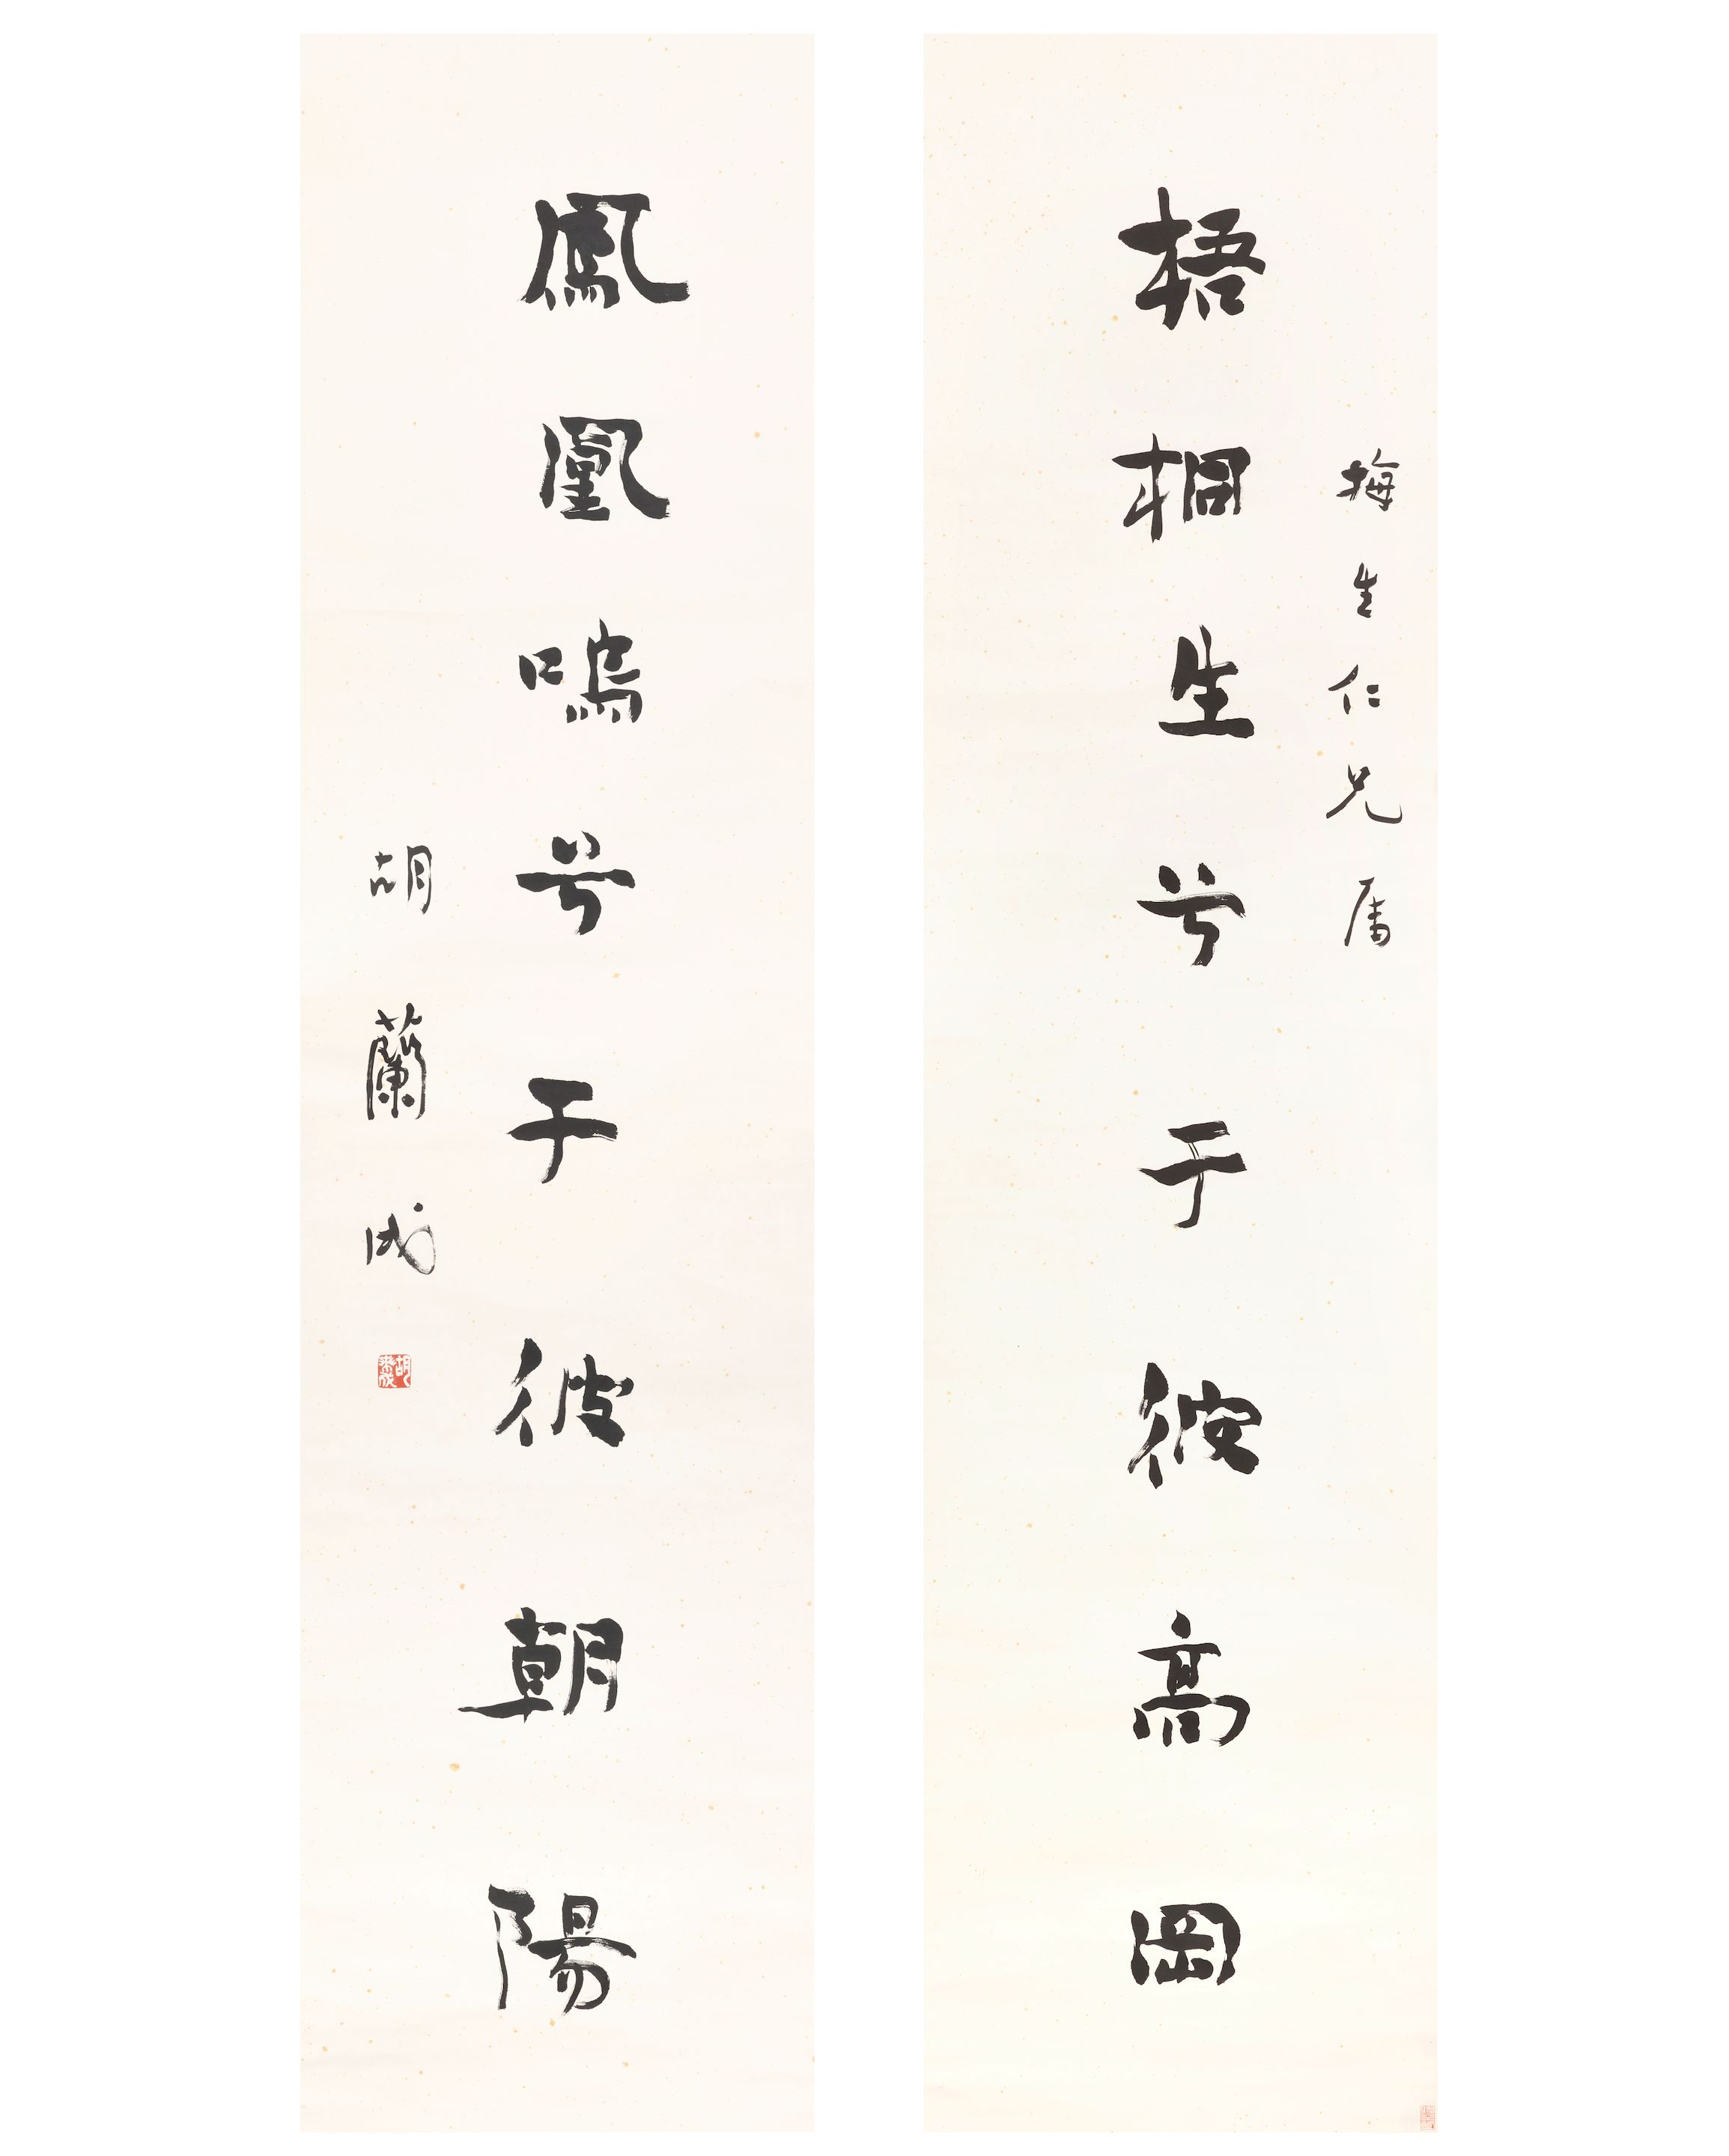 梅生仁兄属
梧桐生兮于彼高岡
鳳凰鳴兮于彼朝陽
胡蘭成